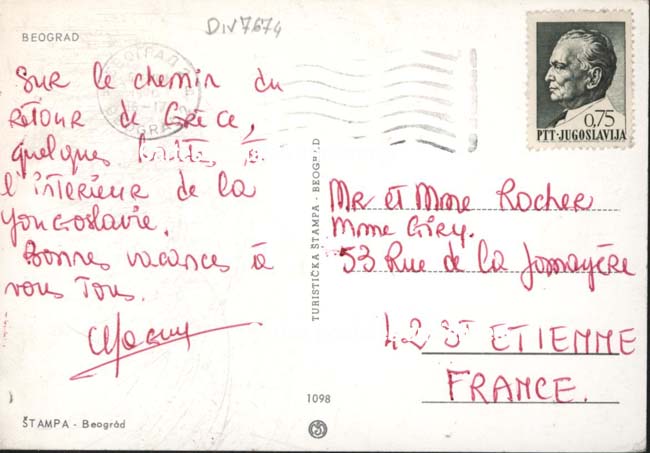 DIV7674
BEOGRAD
БЕОГРАД
BEOGRAD
Sur le chemin du
retour de Grèce,
quelques haltes à
l'interieur de la
Yougoslavie.
Bonnes vacances à
vous Tous.
ŠTAMPA - Beográd
TURISTIČKA ŠTAMPA - BEOGRAD
1098
0,75
PTT-JUGOSLAVIJA
Mr et Mme Rocher
Mme Giry.
53 Rue de la Jomayère
42 ST ETIENNE
FRANCE.